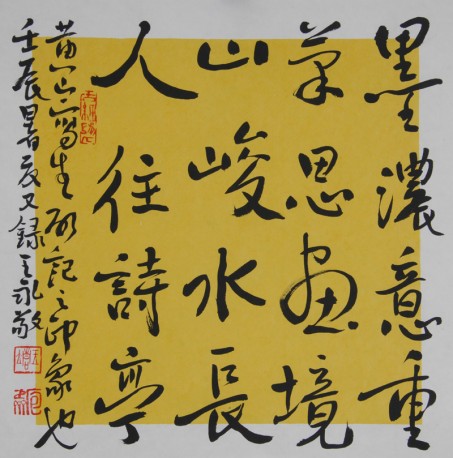 墨濃意重
筆思畫境
山峻水長
人往詩亭
黄山寫生所記之印象也
壬辰暑夏又録王永敬